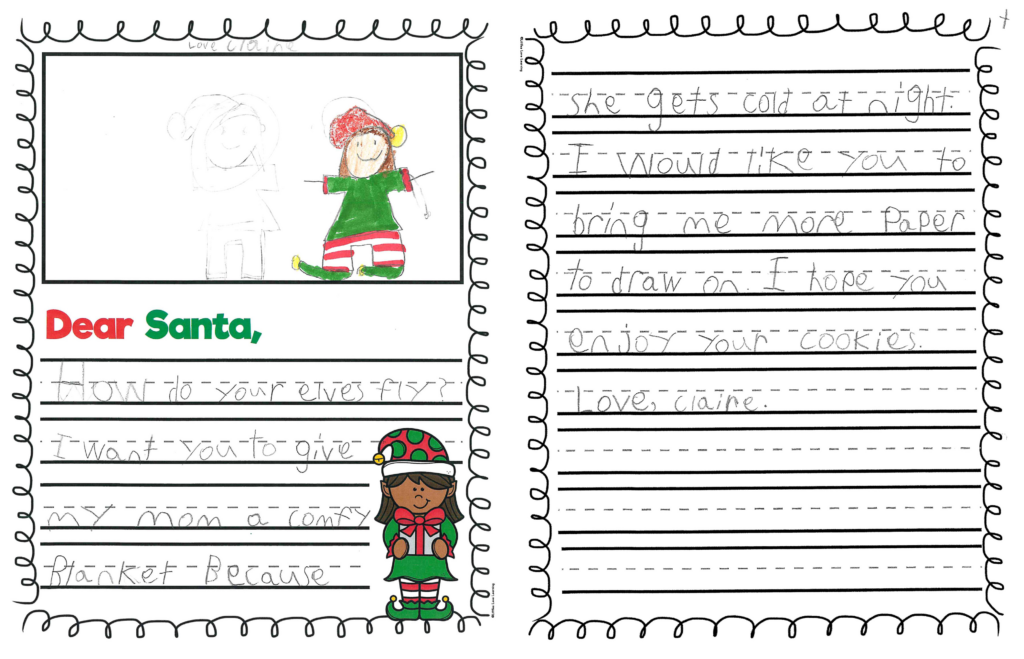 Love Claire
Dear Santa,
How do your elves fly?
I want you to give
my mom a comfy
Blanket Because
she gets cold at night.
I would like you to
bring me more Paper
to draw on. I hope you
enjoy your cookies.
Love, claire.